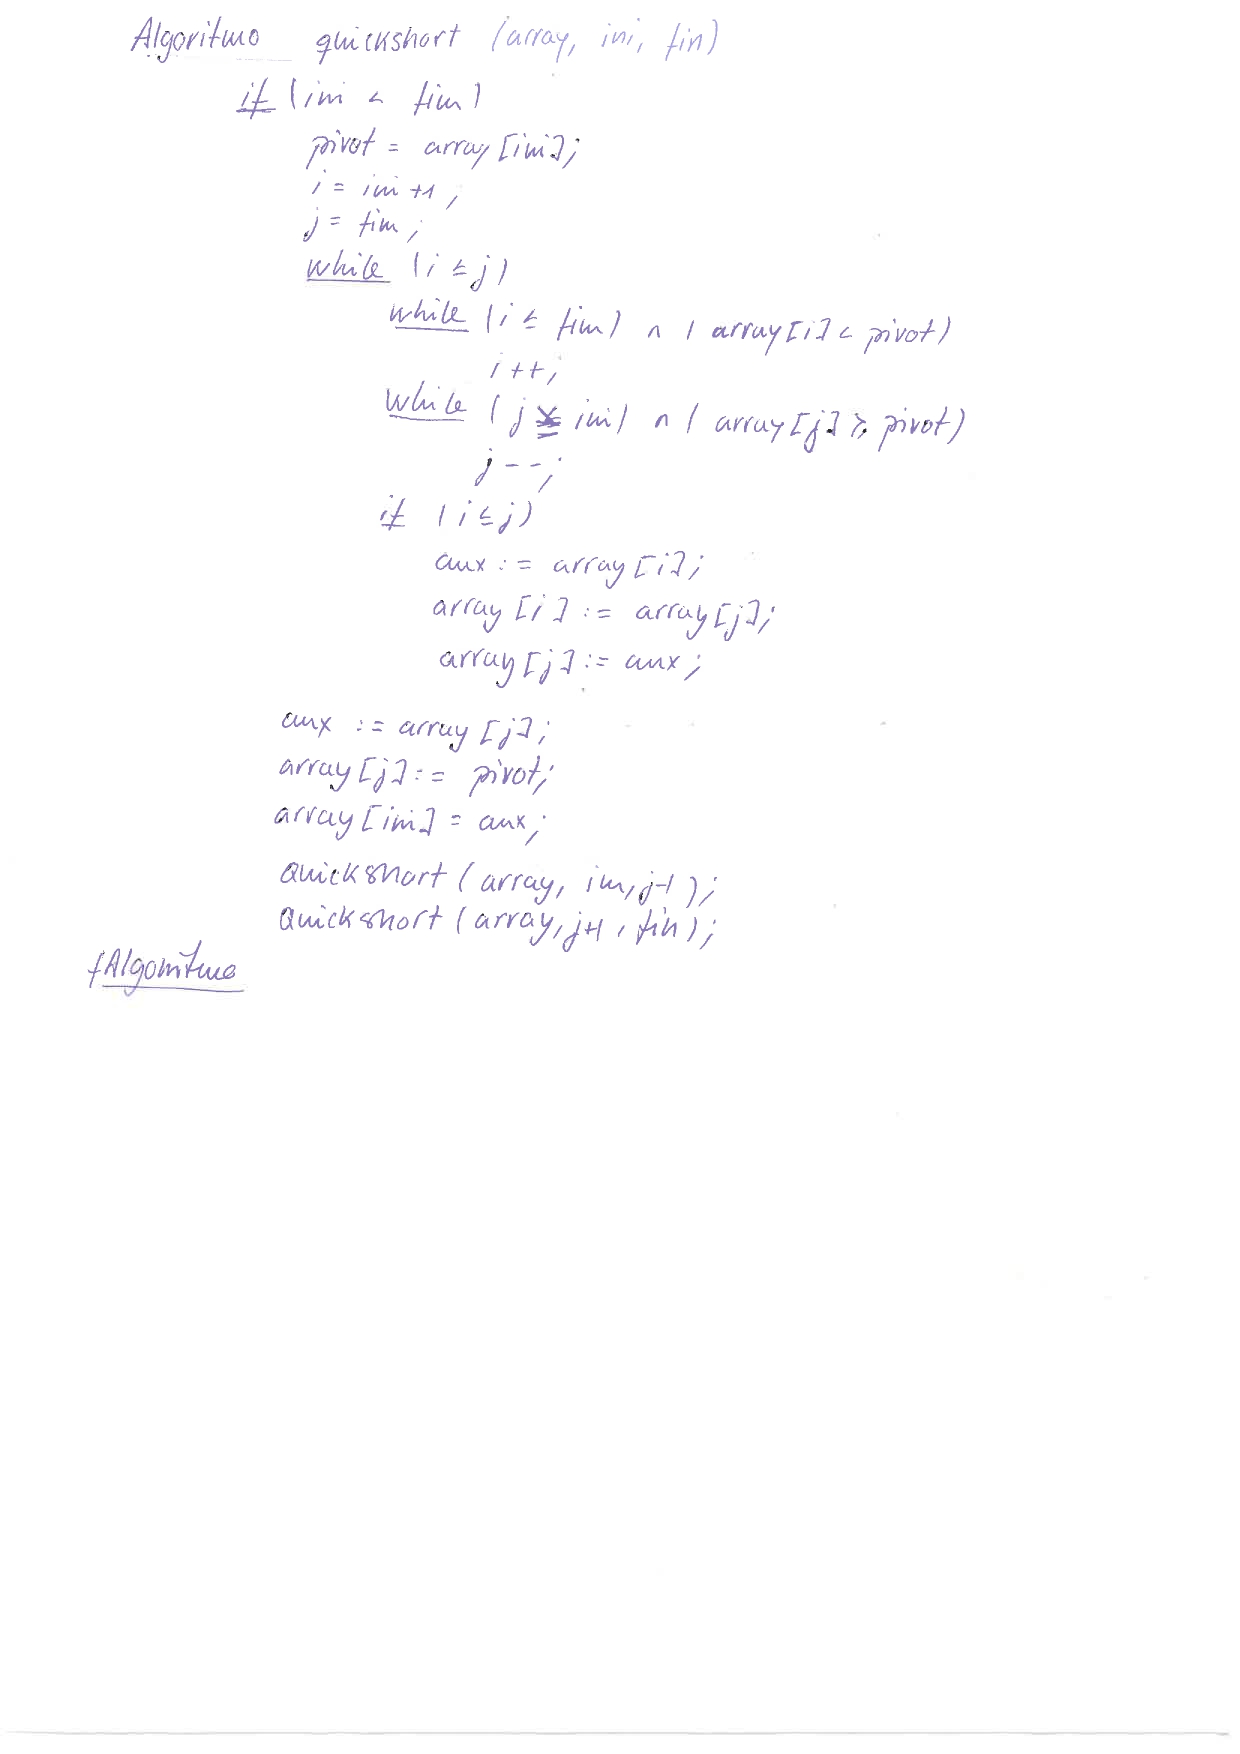 Algoritmo quickshort (array, ini, fin)
if (ini < fin)
pivot = array [ini];
i = ini +1;
j = fin;
while (i ≤ j)
while (i ≤ fin) ∧ (array[i] < pivot)
i ++;
while (j ini) ∧ (array[j] ≥ pivot)
j --;
if (i ≤ j)
aux := array [i];
array [i] := array [j];
array [j] := aux;
aux := array [j];
array [j] := pivot;
array [ini] = aux;
Quickshort (array, ini, j-1);
Quickshort (array, j+1, fin);
fAlgoritmo